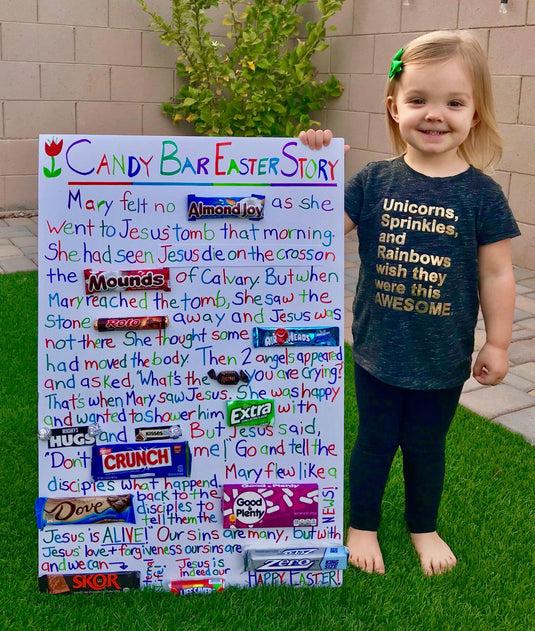 CANDY BAR EASTER STORY
Mary felt no Almond Joy as she
went to Jesus tomb that morning.
She had seen Jesus die on the cross on
the Mounds of Calvary. But when
Mary reached the tomb, She saw the
Stone ROLO away and Jesus was
not there. She thought some AIRHEADS
had moved the body. Then 2 angels appeared
and asked, "What's the you are crying?
That's when Mary saw Jesus. She was happy
and wanted to shower him Extra with
HERSHEY'S HUGS and KISSES But Jesus said,
"Don't CRUNCH me!" Go and tell the
disciples what happend. Mary flew like a
Dove back to the disciples to tell them the Good & Plenty NEWS!
Jesus is ALIVE!" Our sins are many, but with
Jesus' love + forgiveness our sins are ZERO
and we can → SKOR Jesus is indeed our LIFE SAVERS HAPPY EASTER!
Unicorns,
Sprinkles,
and
Rainbows
wish they
were this
AWESOME.